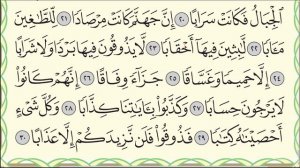 ٱلۡجِبَالُ فَكَانَتۡ سَرَابًا ٢٠ إِنَّ جَهَنَّمَ كَانَتۡ مِرۡصَادٗا ٢١ لِّلطَّٰغِينَ
مَـَٔابٗا ٢٢ لَّٰبِثِينَ فِيهَآ أَحۡقَابٗا ٢٣ لَّا يَذُوقُونَ فِيهَا بَرۡدٗا وَلَا شَرَابًا
٢٤ إِلَّا حَمِيمٗا وَغَسَّاقٗا ٢٥ جَزَآءٗ وِفَاقًا ٢٦ إِنَّهُمۡ كَانُواْ
لَا يَرۡجُونَ حِسَابٗا ٢٧ وَكَذَّبُواْ بِـَٔايَٰتِنَا كِذَّابٗا ٢٨ وَكُلَّ شَيۡءٍ
أَحۡصَيۡنَٰهُ كِتَٰبٗا ٢٩ فَذُوقُواْ فَلَن نَّزِيدَكُمۡ إِلَّا عَذَابًا ٣٠